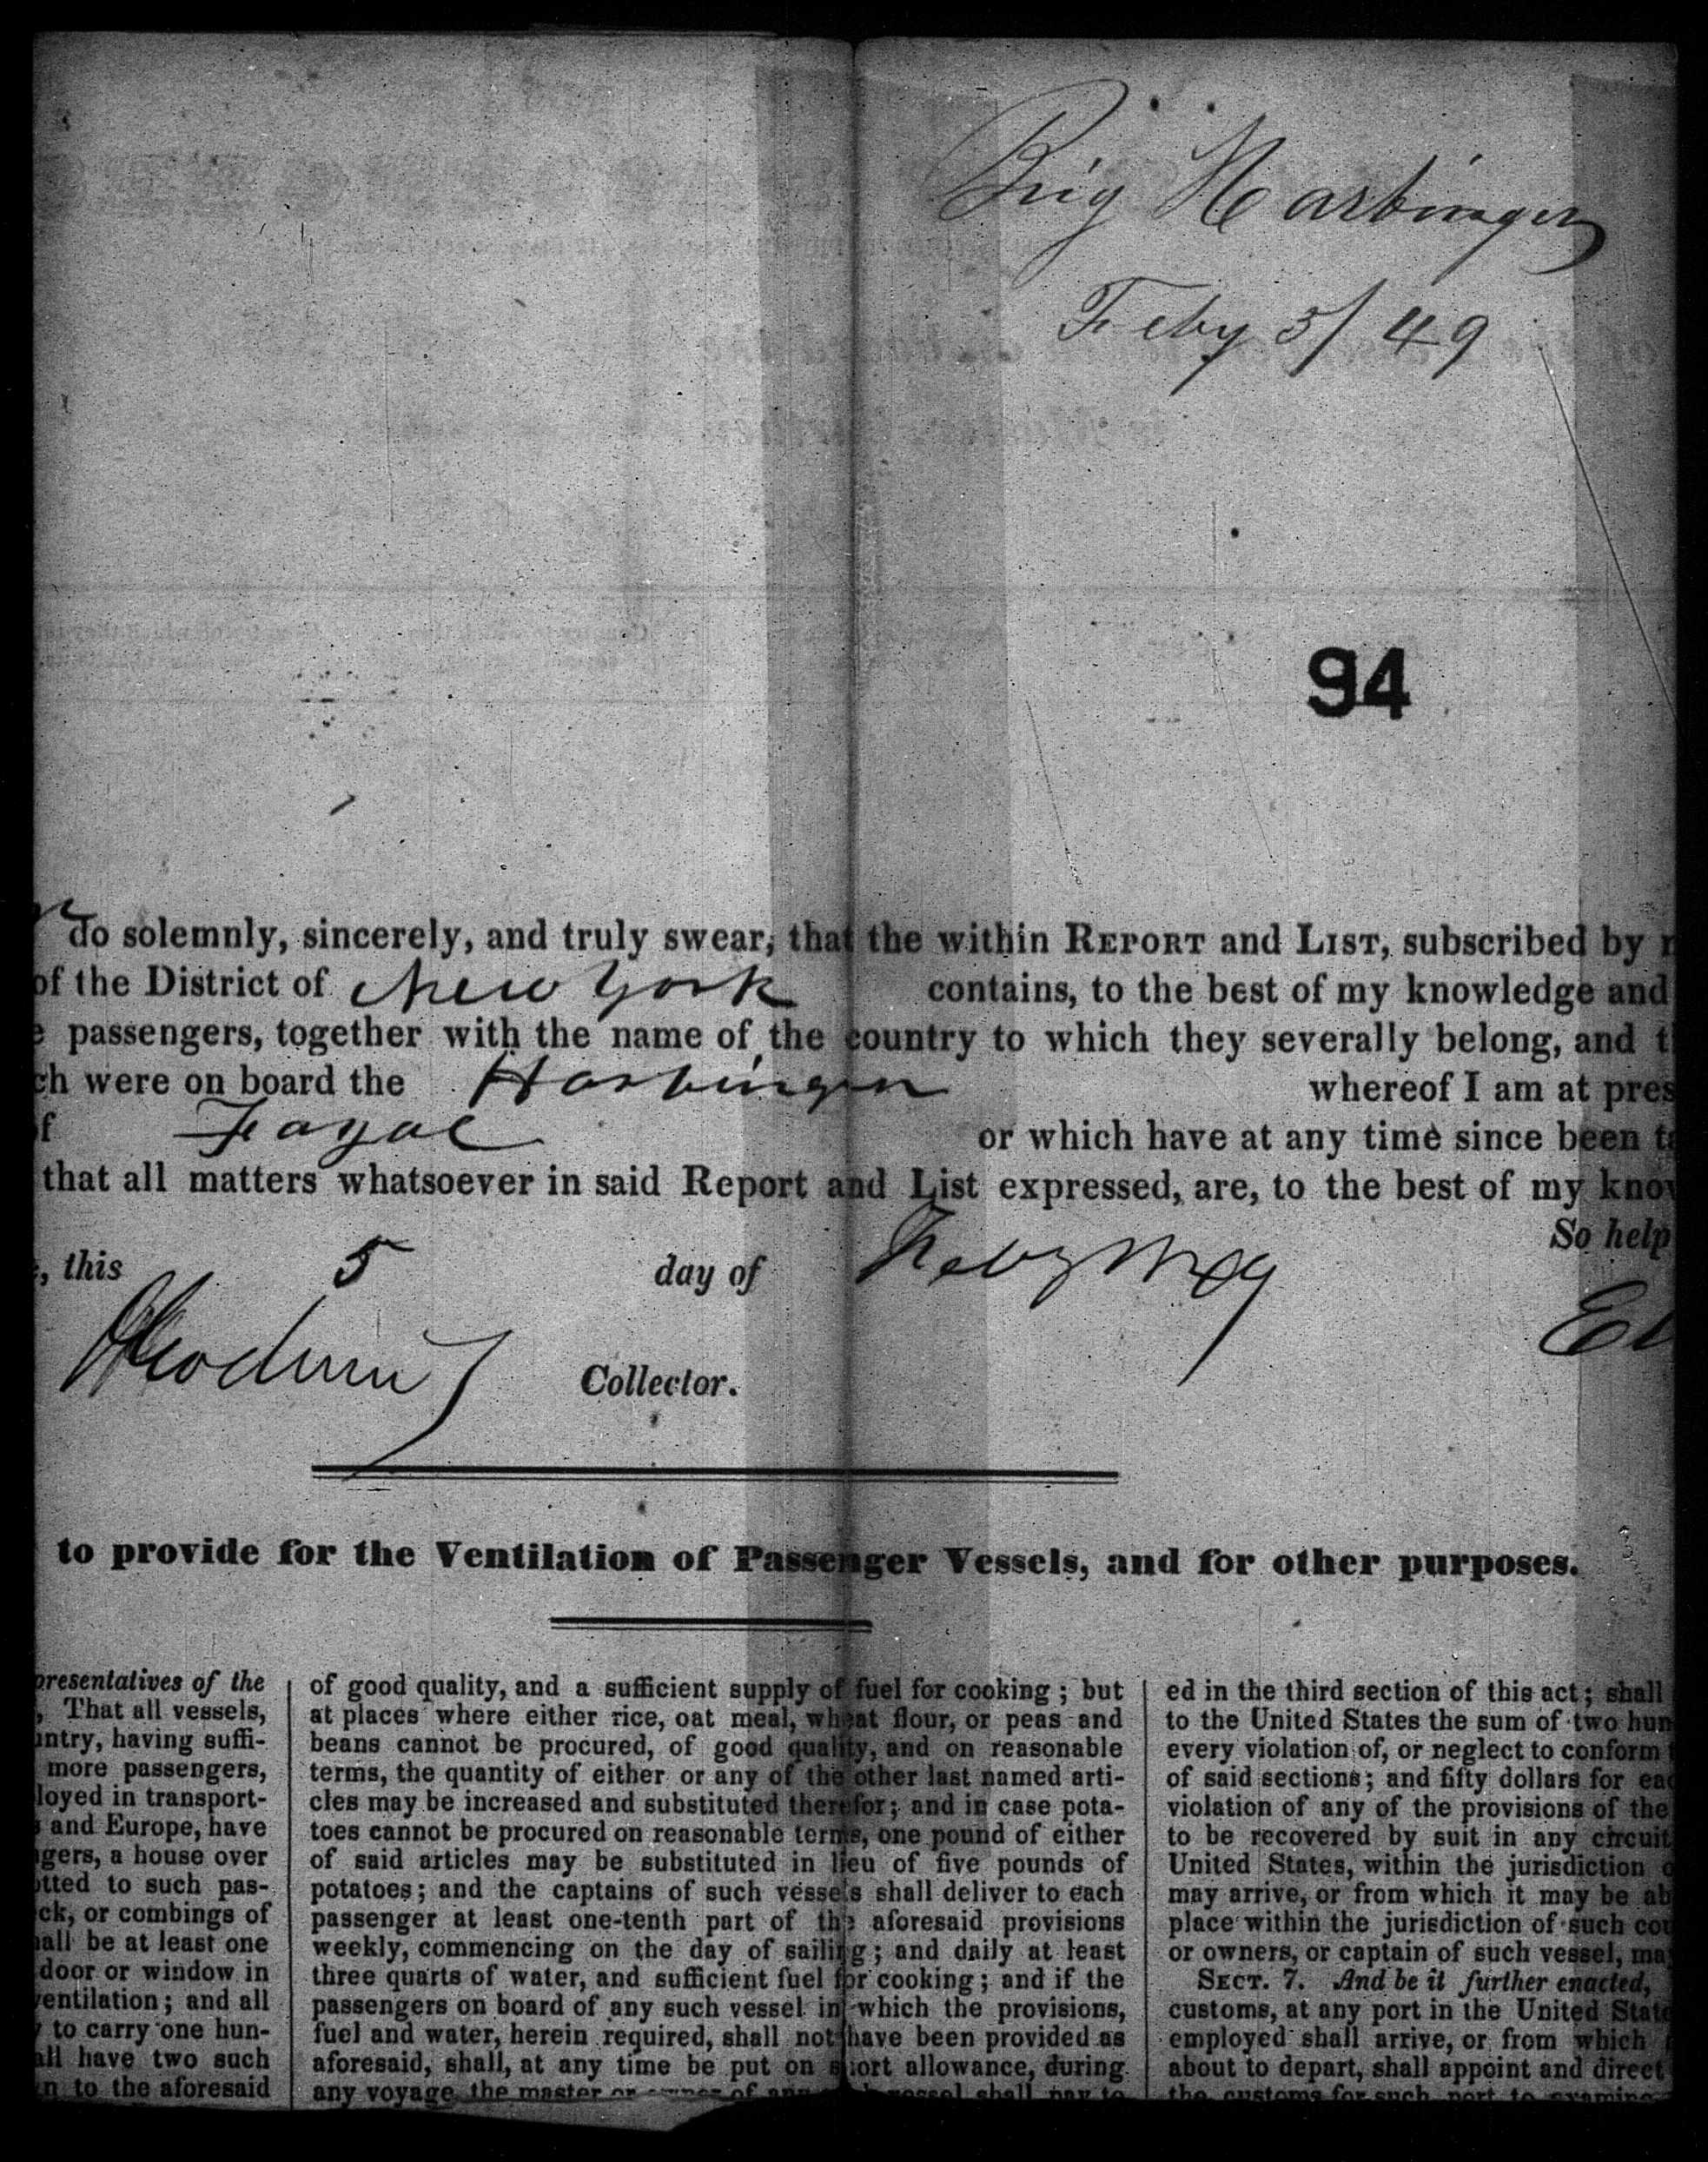 Brig Harbinger
Feby 5/49
94
do solemnly, sincerely, and truly swear, that the within REPORT and LIST, subscribed by
of the District of New York contains, to the best of my knowledge and
passengers, together with the name of the country to which they severally belong, and
were on board the Harbinger whereof I am at pres
Fayal or which have at any time since been
that all matters whatsoever in said Report and List expressed, are, to the best of my know
So help
, this 5 day of Feby
Collector.
to provide for the Ventilation of Passenger Vessels, and for other purposes.
presentatives of the
, That all vessels,
untry, having suffi-
more passengers,
loyed in transport-
and Europe, have
gers, a house over
otted to such pas-
ck, or combings of
all be at least one
door or window in
ventilation; and all
to carry one hun-
all have two such
to the aforesaid
of good quality, and a sufficient supply of fuel for cooking; but
at places where either rice, oat meal, wheat flour, or peas and
beans cannot be procured, of good quality, and on reasonable
terms, the quantity of either or any of the other last named arti-
cles may be increased and substituted therefor; and in case pota-
toes cannot be procured on reasonable terms, one pound of either
of said articles may be substituted in lieu of five pounds of
potatoes; and the captains of such vessels shall deliver to each
passenger at least one-tenth part of the aforesaid provisions
weekly, commencing on the day of sailing; and daily at least
three quarts of water, and sufficient fuel for cooking; and if the
passengers on board of any such vessel in which the provisions,
fuel and water, herein required, shall not have been provided as
aforesaid, shall, at any time be put on short allowance, during
any voyage, the master or owner of any vessel shall pay to
ed in the third section of this act; shall
to the United States the sum of two hun
every violation of, or neglect to conform
of said sections; and fifty dollars for eac
violation of any of the provisions of the
to be recovered by suit in any circuit
United States, within the jurisdiction
may arrive, or from which it may be ab
place within the jurisdiction of such cou
or owners, or captain of such vessel, ma
SECT. 7. And be it further enacted,
customs, at any port in the United State
employed shall arrive, or from which
about to depart, shall appoint and direct
the customs for such port to examine